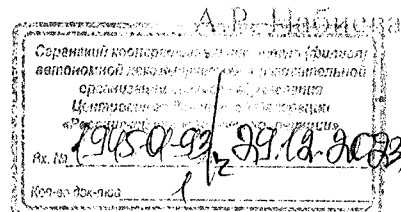 А.Р. Набиева
Саранский кооперативный институт (филиал)
автономной некоммерческой образовательной
организации высшего образования
Центросоюза Российской Федерации
«Российский университет кооперации»
Вх. № 1945-01-93/2 29.12.2023
Кол-во док-тов 1